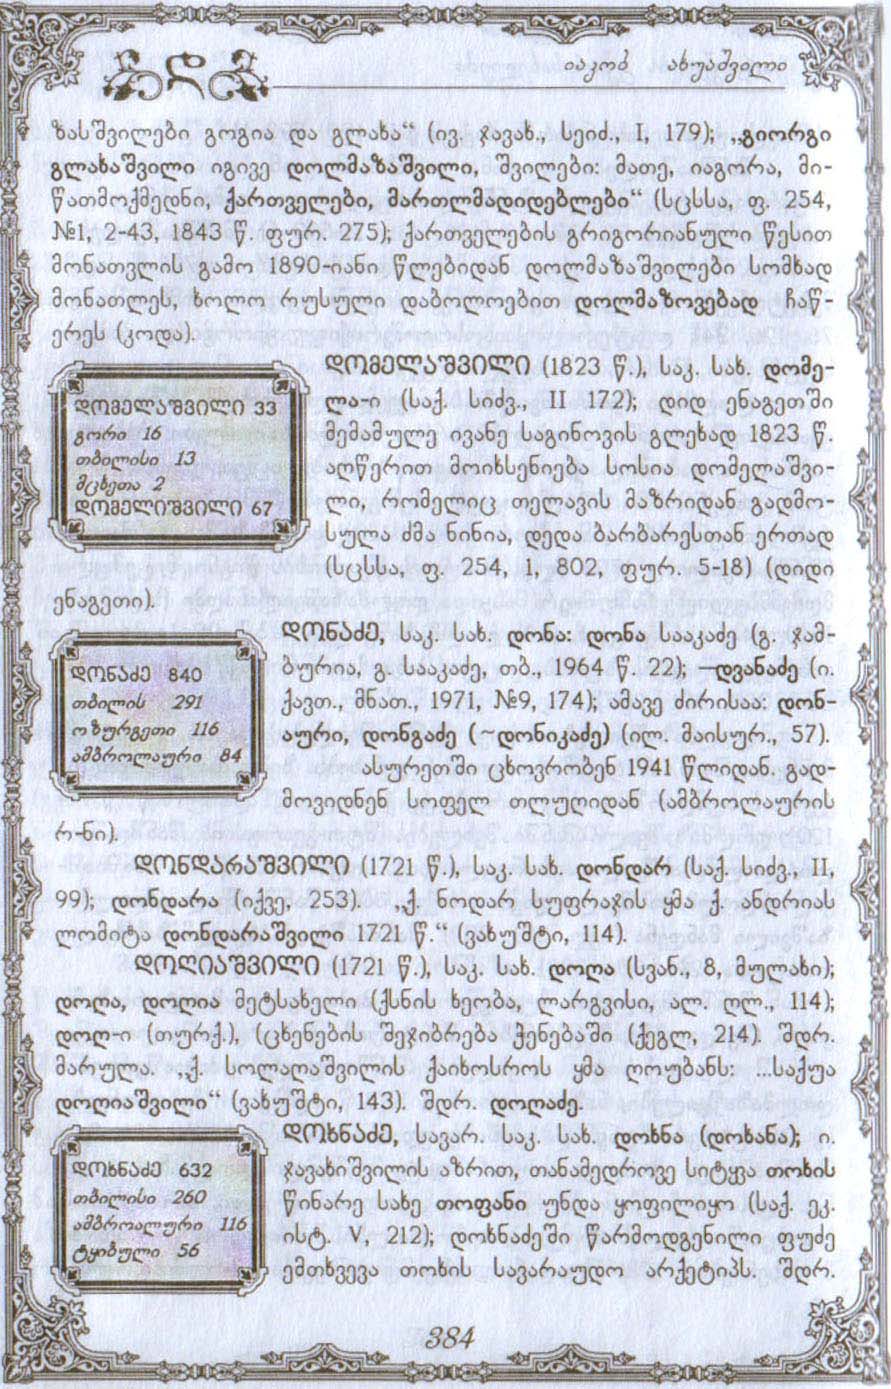 დ
იაკობ ახუაშვილი
ზასშვილები გოგია და გლახა“ (ივ. ჯავახ., სეიძ., I, 179); „გიორგი
გლახაშვილი იგივე დოლმაზაშვილი, შვილები: მათე, იაგორა, მი-
წათმოქმედნი, ქართველები, მართლმადიდებლები“ (სცსსა, ფ. 254,
№1, 2-43, 1843 წ. ფურ. 275); ქართველების გრიგორიანული წესით
მონათვლის გამო 1890-იანი წლებიდან დოლმაზაშვილები სომხად
მონათლეს, ხოლო რუსული დაბოლოებით დოლმაზოვებად ჩაწ-
ერეს (კოდა).
დომელაშვილი 33
გორი 16
თბილისი 13
მცხეთა 2
დომელიშვილი 67
დომელაშვილი (1823 წ.), საკ. სახ. დომე-
ლა-ი (საქ. სიძვ., II 172); დიდ ენაგეთში
მემამულე ივანე საგინოვის გლეხად 1823 წ.
აღწერით მოიხსენიება სოსია დომელაშვი-
ლი, რომელიც თელავის მაზრიდან გადმო-
სულა ძმა ნინია, დედა ბარბარესთან ერთად
(სცსსა, ფ. 254, 1, 802, ფურ. 5-18) (დიდი
ენაგეთი).
დონაძე 840
თბილის 291
ოზურგეთი 116
ამბროლაური 84
დონაძე, საკ. სახ. დონა: დონა სააკაძე (გ. ჯამ-
ბურია, გ. სააკაძე, თბ., 1964 წ. 22); —დვანაძე (ი.
ქავთ., მნათ., 1971, №9, 174); ამავე ძირისაა: დონ-
აური, დონგაძე (~დონიკაძე) (ილ. მაისურ., 57).
ასურეთში ცხოვრობენ 1941 წლიდან. გად-
მოვიდნენ სოფელ თლუღიდან (ამბროლაურის
რ-ნი).
დონდარაშვილი (1721 წ.), საკ. სახ. დონდარ (საქ. სიძვ., II,
99); დონდარა (იქვე, 253). „ქ. ნოდარ სუფრაჯის ყმა ქ. ანდრიას
ლომიტა დონდარაშვილი 1721 წ.“ (ვახუშტი, 114).
დოღიაშვილი (1721 წ.), საკ. სახ. დოღა (სვან., 8, მულახი);
დოღა, დოღია მეტსახელი (ქსნის ხეობა, ლარგვისი, ალ. ღლ., 114);
დოღ-ი (თურქ.), (ცხენების შეჯიბრება ჭენებაში (ქეგლ, 214) შდრ.
მარულა. „ქ. სოლაღაშვილის ქაიხოსროს ყმა ღოუბანს: ...საქუა
დოღიაშვილი“ (ვახუშტი, 143). შდრ. დოღაძე.
დოხნაძე 632
თბილისი 260
ამბროალური 116
ტყიბული 56
დოხნაძე, სავარ. საკ. სახ. დოხნა (დოხანა); ი.
ჯავახიშვილის აზრით, თანამედროვე სიტყვა თოხის
წინარე სახე თოფანი უნდა ყოფილიყო (საქ. ეკ.
ისტ. V, 212); დოხნაძეში წარმოდგენილი ფუძე
ემთხვევა თოხის სავარაუდო არქეტიპს. შდრ.
384